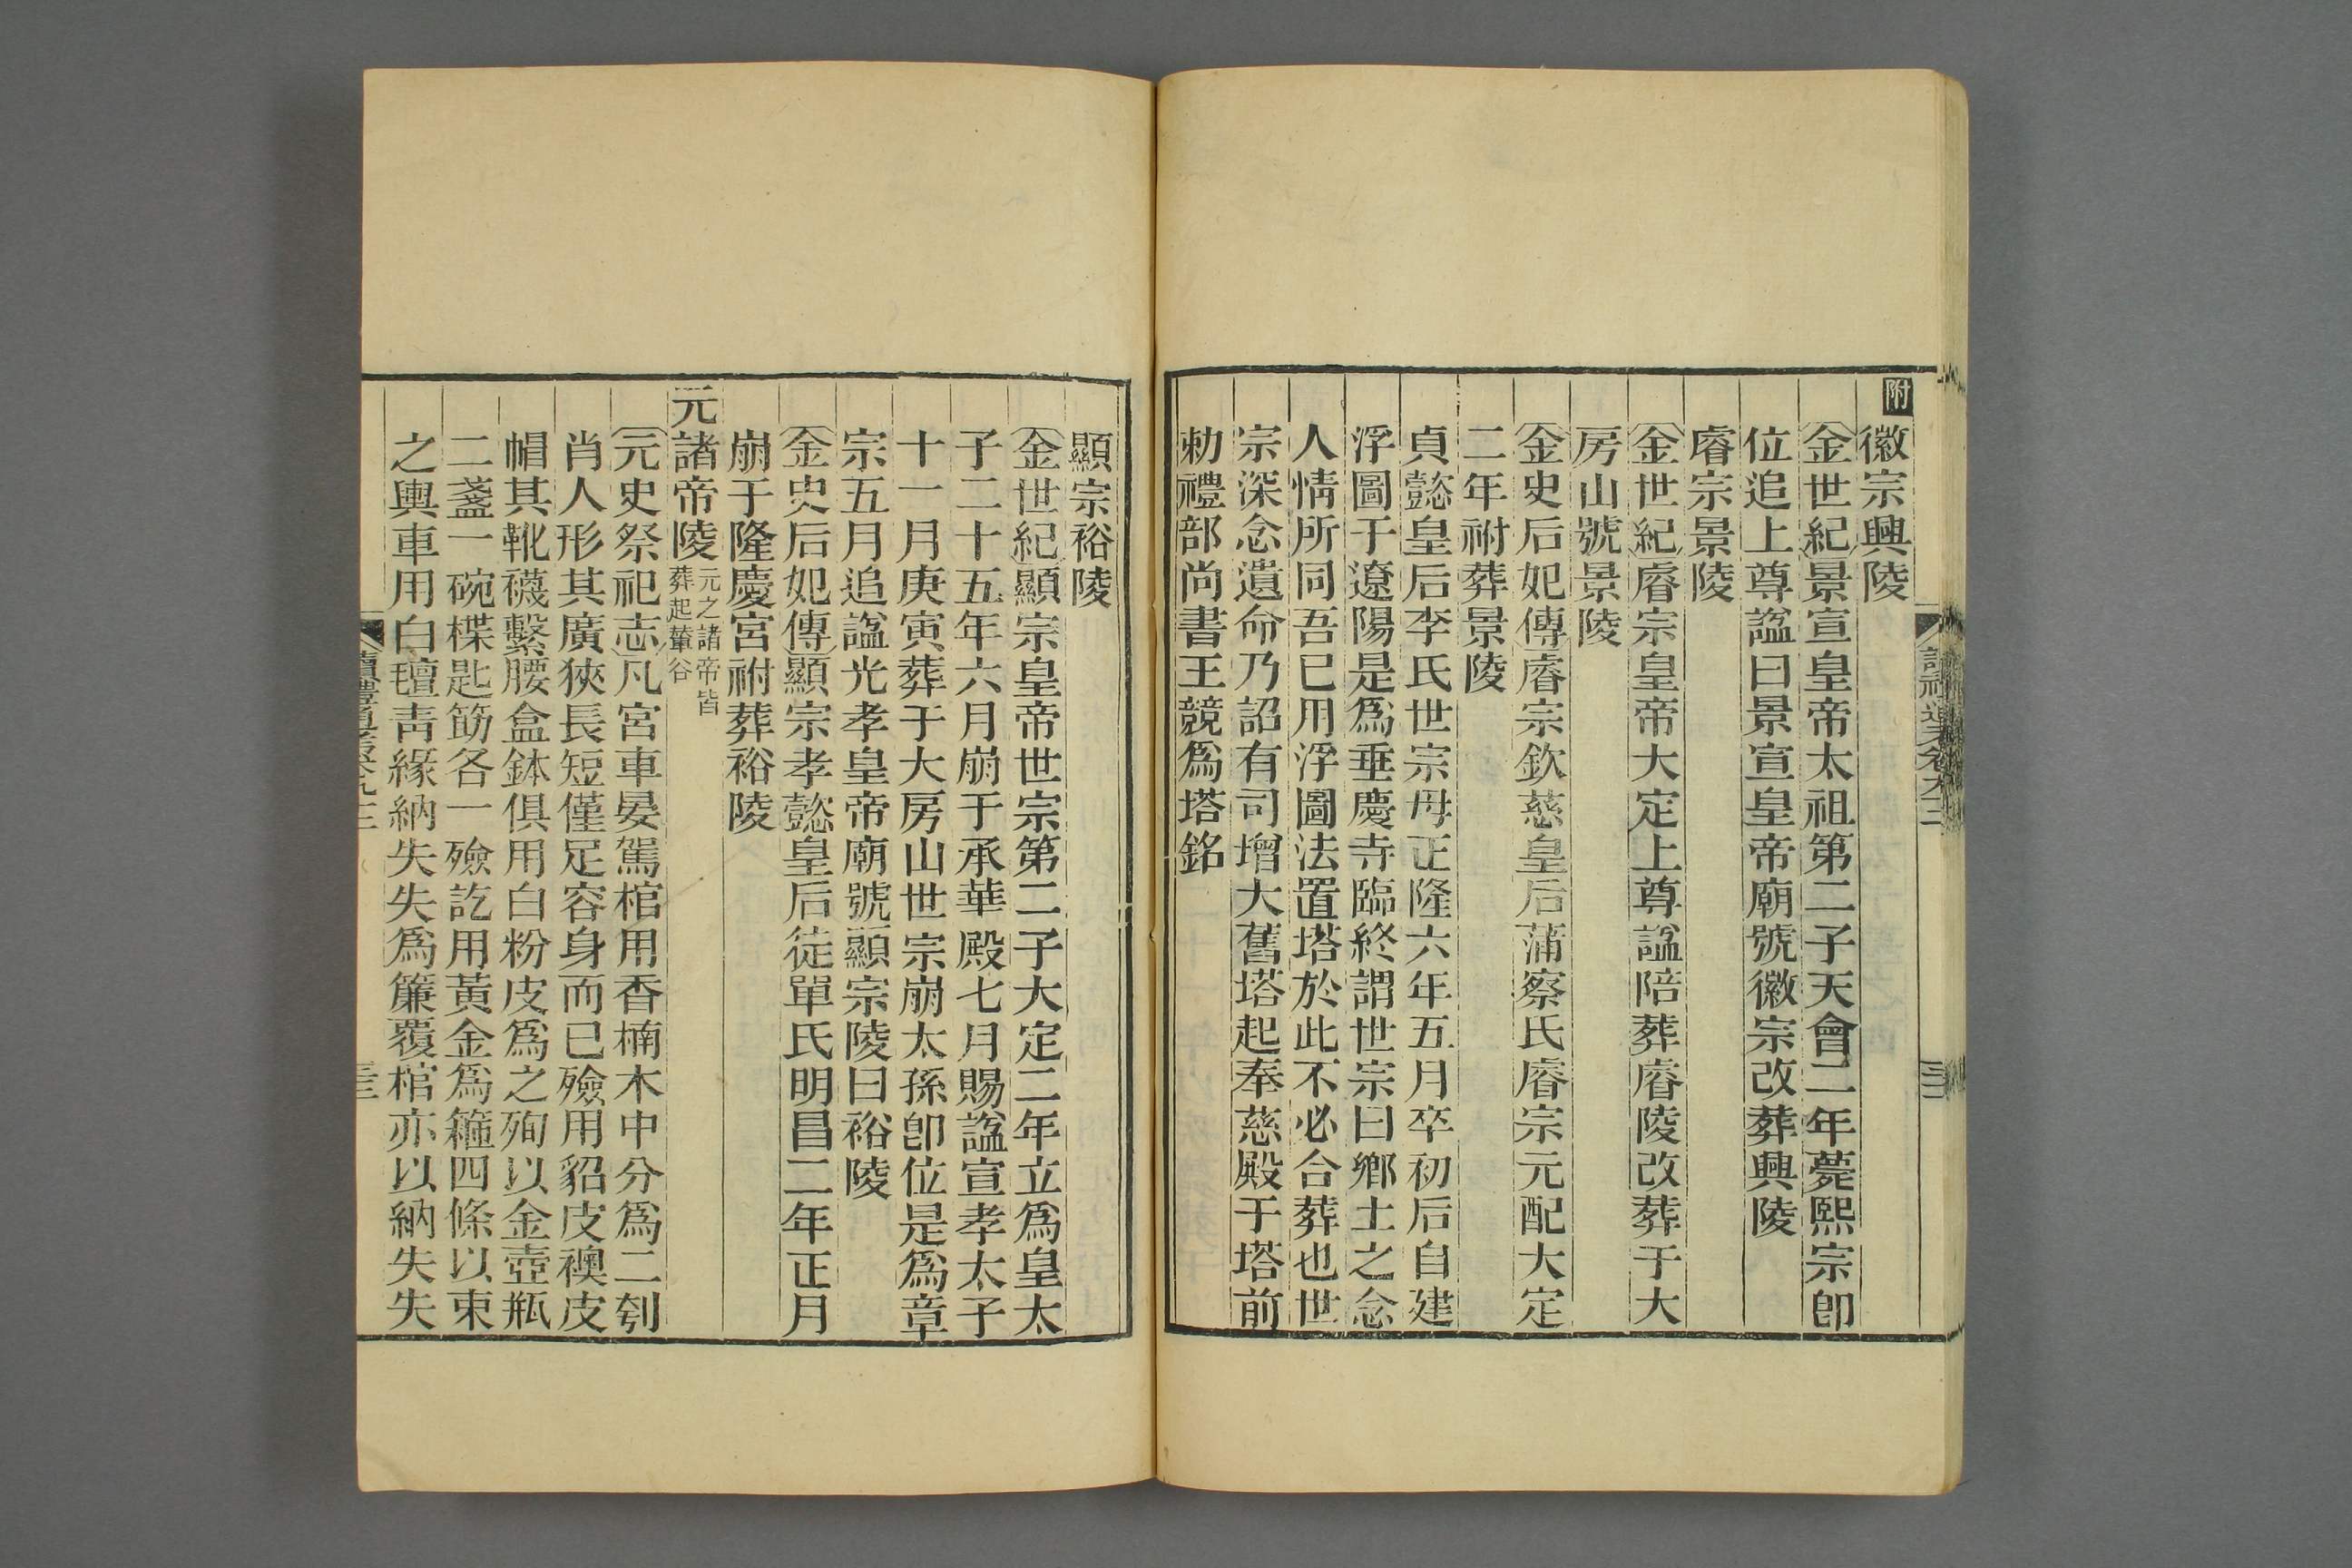 附
徽宗興陵
金世紀景宣皇帝太祖第二子天會二年薨熙宗卽
位追上尊諡曰景宣皇帝廟號徽宗改葬興陵
睿宗景陵
金世紀睿宗皇帝大定上尊諡陪葬睿陵改葬于大
房山號景陵
金史后妃傳睿宗欽慈皇后蒲察氏睿宗元配大定
二年祔葬景陵
貞懿皇后李氏世宗母正隆六年五月卒初后自建
浮圖于遼陽是爲垂慶寺臨終謂世宗曰鄉土之念
人情所同吾已用浮圖法置塔於此不必合葬也世
宗深念遺命乃詔有司增大舊塔起奉慈殿于塔前
勅禮部尚書王競爲塔銘
顯宗裕陵
金世紀顯宗皇帝世宗第二子大定二年立爲皇太
子二十五年六月崩于承華殿七月賜諡宣孝太子
十一月庚寅葬于大房山世宗崩太孫卽位是爲章
宗五月追諡光孝皇帝廟號顯宗陵曰裕陵
金史后妃傳顯宗孝懿皇后徒單氏明昌二年正月
崩于隆慶宮祔葬裕陵
元諸帝陵元之諸帝皆
葬起輦谷
元史祭祀志凡宮車晏駕棺用香楠木中分爲二刳
肖人形其廣狹長短僅足容身而已殮用貂皮襖皮
帽其靴襪繫腰盒鉢俱用白粉皮爲之殉以金壺瓶
二盞一碗楪匙筯各一殮訖用黃金爲箍四條以束
之輿車用白氊靑緣納失失爲簾覆棺亦以納失失